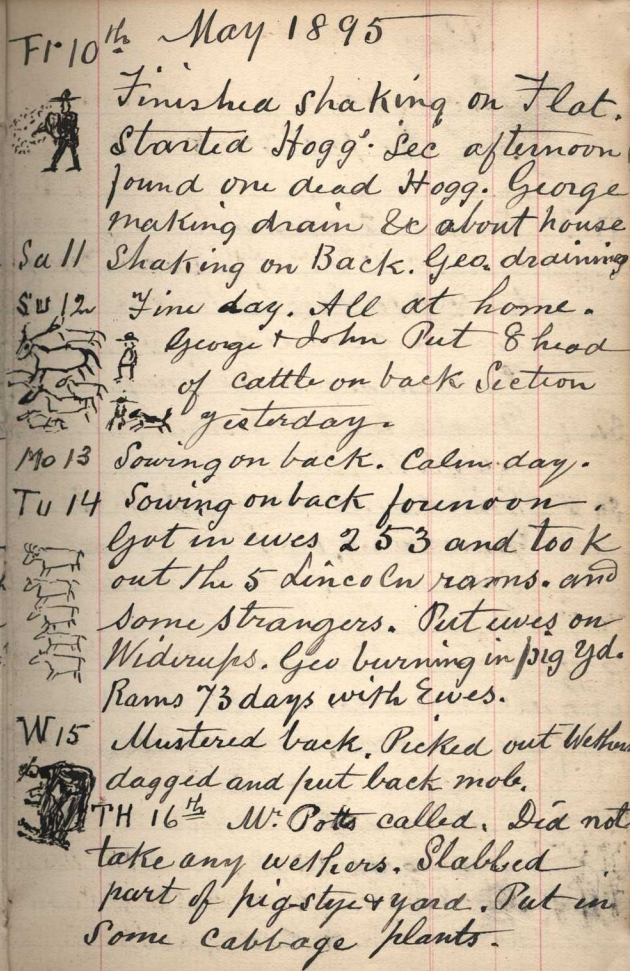 Fr 10th May 1895
Finished shaking on Flat.
Started Hogg's Sec afternoon
found one dead Hogg. George
making drain &c about house
Sa 11 Shaking on Back. Geo. draining
Su 12 Fine day. All at home.
George & John Put 8 head
of cattle on back Section
yesterday.
Mo 13 Sowing on back. Calm day.
Tu 14 Sowing on back forenoon.
Got in ewes 253 and took
out the 5 Lincoln rams. and
some strangers. Put ewes on
Geo burning in pig yd.
Rams 73 days with Ewes.
W 15 Mustered back. Picked out Wethers
dagged and put back mob.
TH 16th Mr. Potts called. Did not
take any wethers. Slabbed
part of pig-stye & yard. Put in
some cabbage plants.